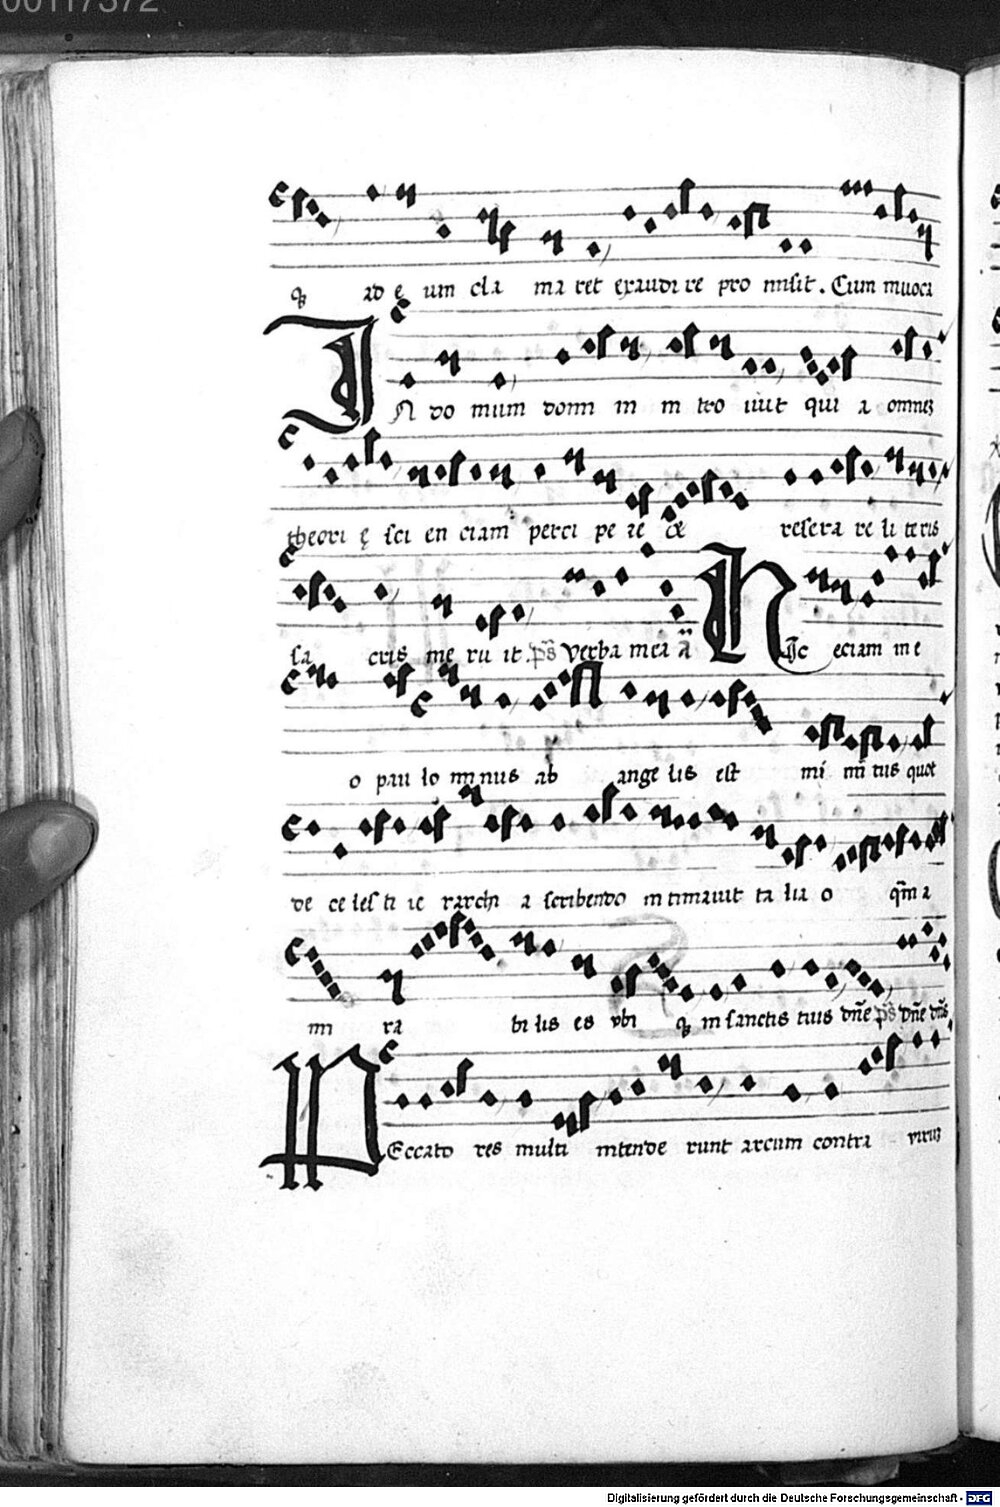 00117372
ad e um cla ma ret exaudi re pro misit. Cum invoca
IN do mum domi ni in tro ivit qui a omnez
theori ę sci en ciam perci pe re reserа re li teris
sa cris me ru it. ps̄ verba mea a
Hic eciam in e
o pau lo minus ab ange lis est mi ni tus quot
de ce les ti ie rarchi a scribendo intimavit ta lia o qm̄ a
mi ra bi lis es ubi qz in sanctis tuis dn̄e ps̄ dn̄e dn̄s
PEccato res multi intende runt arcum contra
Digitalisierung gefördert durch die Deutsche Forschungsgemeinschaft - DFG